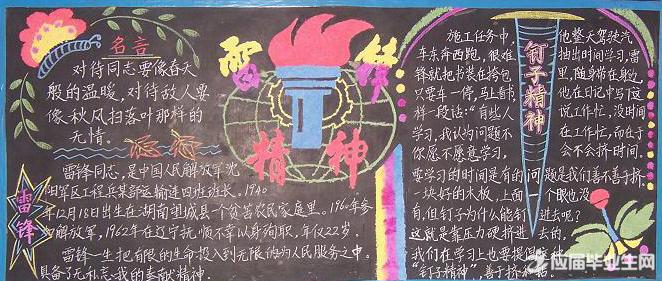 名言
对待同志要像春天
般的温暖，对待敌人要
像秋风扫落叶那样的
无情。
雷锋
精神
雷锋
雷锋同志，是中国人民解放军沈
阳军区工程兵某部运输连四班班长。1940
年12月18日出生在湖南望城县一个贫苦农民家庭里。1960年参
加解放军，1962年在辽宁抚顺不幸以身徇职，年仅22岁。
雷锋一生把有限的生命投入到无限的为人民服务之中。
具备了无私忘我的奉献精神.
钉子精神
施工任务中，他整天驾驶汽
车东奔西跑，很难抽出时间学习，雷
锋就把书装在挎包里，随身带在身边，
只要车一停，马上看书。他在日记中写了这
样一段话：“有些人说工作忙，没时间
学习，我认为问题不在工作忙，而在于
你愿不愿意学习，会不会挤时间.
要学习的时间是有的问题是我们善不善于挤.
一块好的木板，上面一个眼也没
有，但钉子为什么能钉进去呢？
这就是靠压力硬挤进去的，
我们在学习上也要提倡
“钉子精神”，善于挤和钻
应届毕业生网